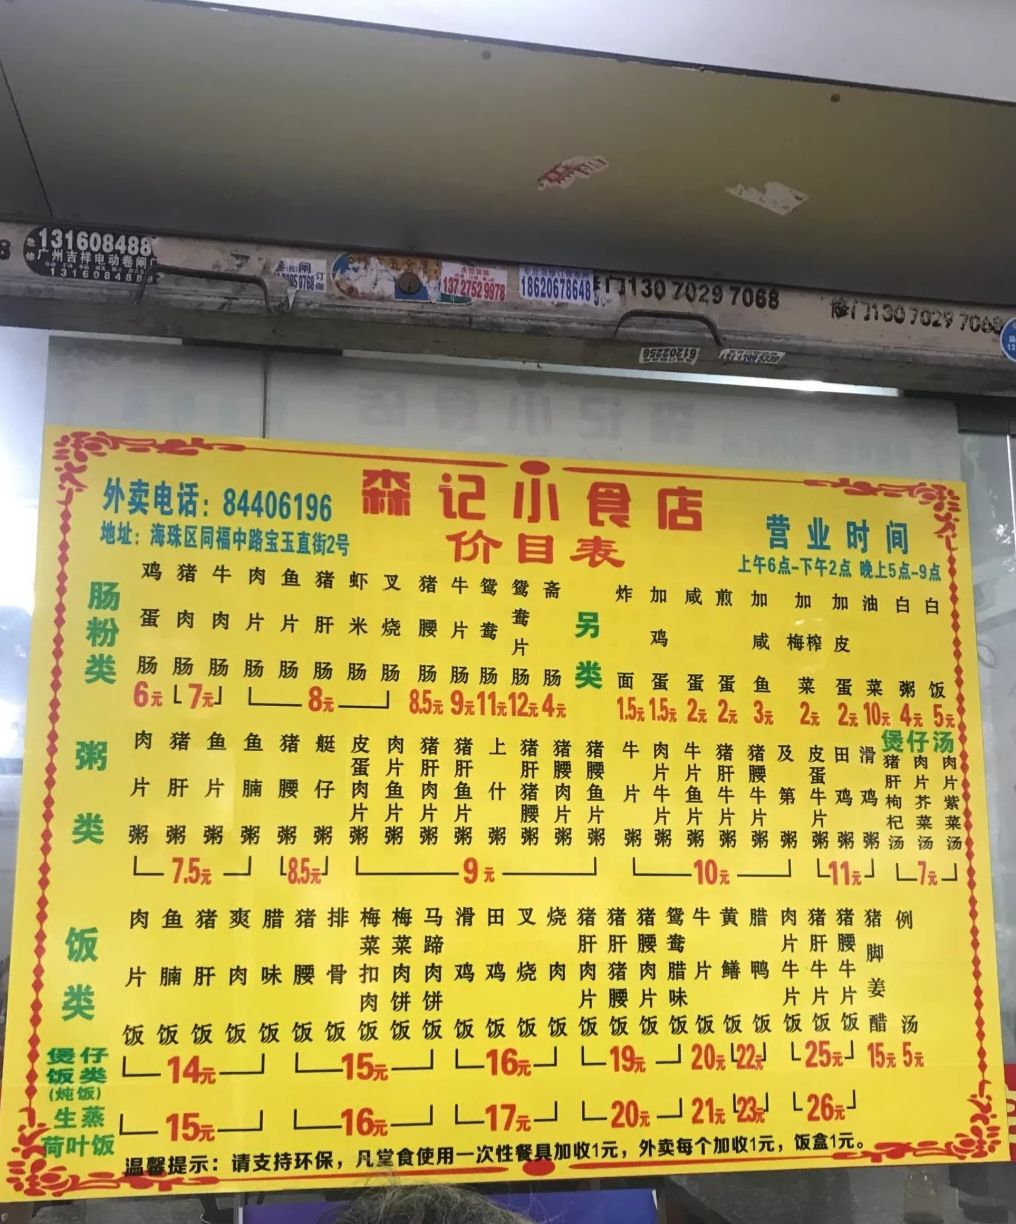 131608488
广州吉祥电动卷闸
1316084888
13727529978
18620678648
门130 7029 7068
修门130 7029 7068
61202256
森记小食店
价目表
外卖电话：84406196
地址：海珠区同福中路宝玉直街2号
营业时间
上午6点-下午2点 晚上5点-9点
肠粉类
鸡蛋肠
猪肉肠
牛肉肠
肉片肠
鱼片肠
猪肝肠
虾米肠
叉烧肠
猪腰肠
牛片肠
鸳鸯肠
鸳鸯片肠
斋肠
6元 7元 8元 8.5元 9元 11元 12元 4元
另类
炸面
加鸡蛋
咸蛋
煎蛋
加咸鱼
加梅榨菜
加皮蛋
油菜
白粥
白饭
1.5元 1.5元 2元 2元 3元 2元 2元 10元 4元 5元
粥类
肉片粥
猪肝粥
鱼片粥
鱼腩粥
猪腰粥
艇仔粥
皮蛋肉片粥
肉片鱼片粥
猪肝肉片粥
猪肝鱼片粥
上什粥
猪肝猪腰粥
猪腰肉片粥
猪腰鱼片粥
牛片粥
肉片牛片粥
牛片鱼片粥
猪肝牛片粥
猪腰牛片粥
及第粥
皮蛋牛片粥
田鸡粥
滑鸡粥
煲仔汤
猪肝枸杞汤
肉片芥菜汤
肉片紫菜汤
7.5元 8.5元 9元 10元 11元 7元
饭类
肉片饭
鱼腩饭
猪肝饭
爽肉饭
腊味饭
猪腰饭
排骨饭
梅菜扣肉饭
梅菜肉饼饭
马蹄肉饼饭
滑鸡饭
田鸡饭
叉烧饭
烧肉饭
猪肝肉片饭
猪肝猪腰饭
猪腰肉片饭
鸳鸯腊味饭
牛片饭
黄鳝饭
腊鸭饭
肉片牛片饭
猪肝牛片饭
猪腰牛片饭
猪脚姜醋
例汤
煲仔
饭类
(炖饭)
14元 15元 16元 19元 20元 22元 25元 15元 5元
生蒸
荷叶饭
15元 16元 17元 20元 21元 23元 26元
温馨提示：请支持环保，凡堂食使用一次性餐具加收1元，外卖每个加收1元，饭盒1元。